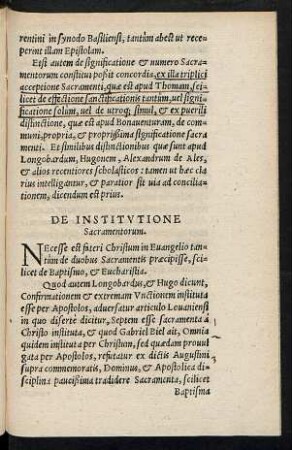 rentini in synodo Basiliensi, tantùm abest ut rece
perint illam Epistolam.
Etsi autem de significatione & numero Sacra-
mentorum constitui possit concordia, ex illa triplici
acceptione Sacramenti, quæ est apud Thomam, sci-
licet de effectione sanctificationis tantùm, uel signi-
ficatione solùm, uel de utroq; simul, & ex puerili
distinctione, quæ est apud Bonauenturam, de com-
muni, propria, & proprijssima significatione sacra
menti. Et similibus distinctionibus quæ sunt apud
Longobardum, Hugonem, Alexandrum de Ales,
& alios recentiores scholasticos: tamen ut hæc cla
rius intelligantur, & paratior sit uia ad concilia-
tionem, dicendum est prius.
DE INSTITVTIONE
Sacramentorum.
NEcesse est fateri Christum in Euangelio tan-
tùm de duobus Sacramentis præcipisse, sci-
licet de Baptismo, & Eucharistia.
Quod autem Longobardus, & Hugo dicunt,
Confirmationem & extremam Vnctionem instituta
esse per Apostolos, aduersatur articulo Louaniensi
in quo disertè dicitur, Septem esse sacramenta à
Christo instituta, & quod Gabriel Biel ait, Omnia
quidem instituta per Christum, sed quædam promul
gata per Apostolos, refutatur ex dictis Augustini
supra commemoratis, Dominus, & Apostolica di-
sciplina paucissima tradidere Sacramenta, scilicet
Baptisma